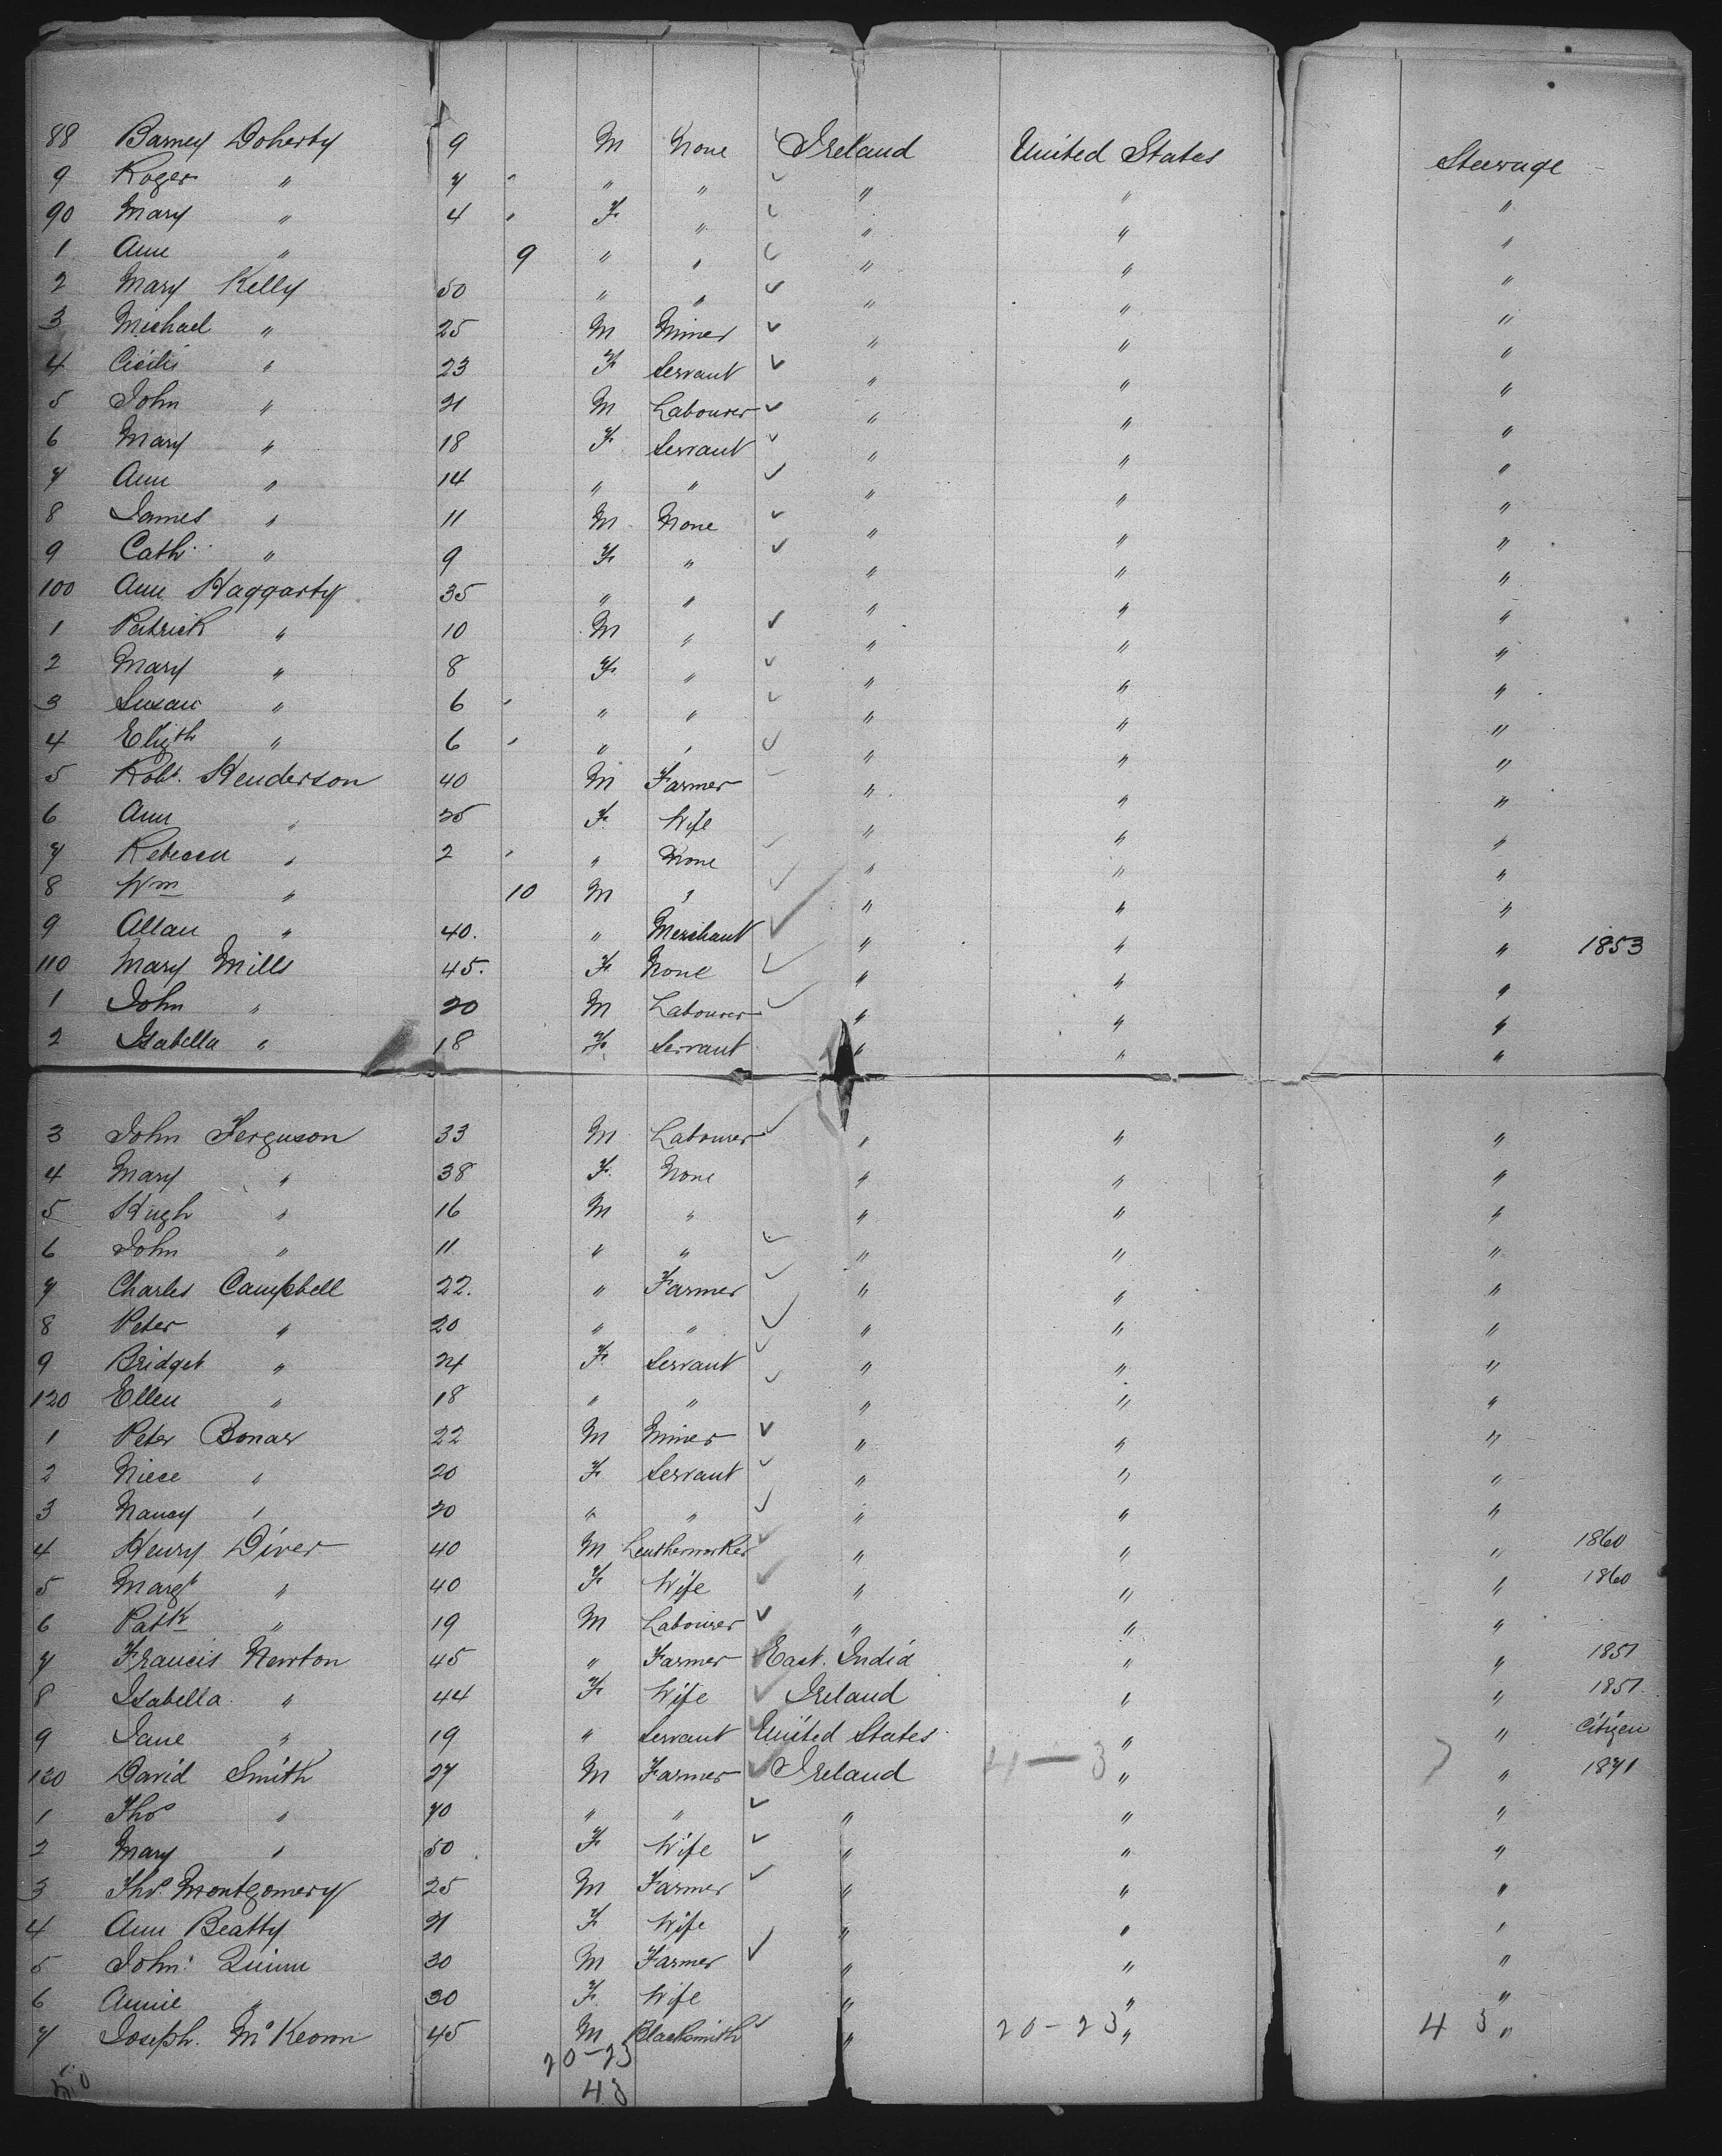 88 Barney Doherty 9 M None Ireland United States Steerage
9 Roger " 7 " " " " "
90 Mary " 4 F " " " "
1 Ann " 9 " " " " "
2 Mary Kelly 50 " " " " "
3 Michael " 25 M Miner " " "
4 " 23 F Servant " " "
5 John " 21 M Labourer " " "
6 Mary " 18 F Servant " " "
7 Ann " 14 " " " " "
8 James " 11 M None " " "
9 Cath. " 9 F " " " "
100 Ann Haggarty 35 " " " " "
1 Patrick " 10 M " " " "
2 Mary " 8 F " " " "
3 Susan " 6 " " " " "
4 Elizth " 6 " " " " "
5 Robt. Henderson 40 M Farmer " " "
6 Ann " F Wife " " "
7 Rebecca " 2 " None " " "
8 Wm " 10 M " " " "
9 Allan " 40. " Merchant " " " 1853
110 Mary Mills 45. F None " " "
1 John " 20 M Labourer " " "
2 Isabella " 18 F Servant " " "
3 John Ferguson 33 M Labourer " " "
4 Mary " 38 F. None " " "
5 Hugh " 16 M " " " "
6 John " 11 " " " " "
7 Charles Campbell 22. " Farmer " " "
8 Peter " 20 " " " " "
9 Bridget " 24 F Servant " " "
120 Ellen " 18 " " " " "
1 Peter Bonar 22 M Miner " " "
2 Niece " 20 F Servant " " "
3 Nancy " 20 " " " " "
4 Henry Diver 40 M Leatherworker " " " 1860
5 Margt " 40 F Wife " " " 1860
6 Patk " 19 M Labourer " " "
7 Francis Newton 45 " Farmer East. India " " 1851
8 Isabella " 44 F Wife Ireland " " 1851.
9 Jane " 19 " Servant United States " " Citizen
130 David Smith 27 M Farmer Ireland 4-3 " " 1871
1 Thos " 70 " " " " "
2 Mary " 50 F Wife " " "
3 Thos. Montgomery 25 M Farmer " " "
4 Ann Beatty 21 F Wife " " "
5 John. Quinn 30 M Farmer " " "
6 Annie " 30 F. Wife " " "
7 Joseph. McKeown 45 M Blacksmith " 20-23 " 43 "
20-23
43